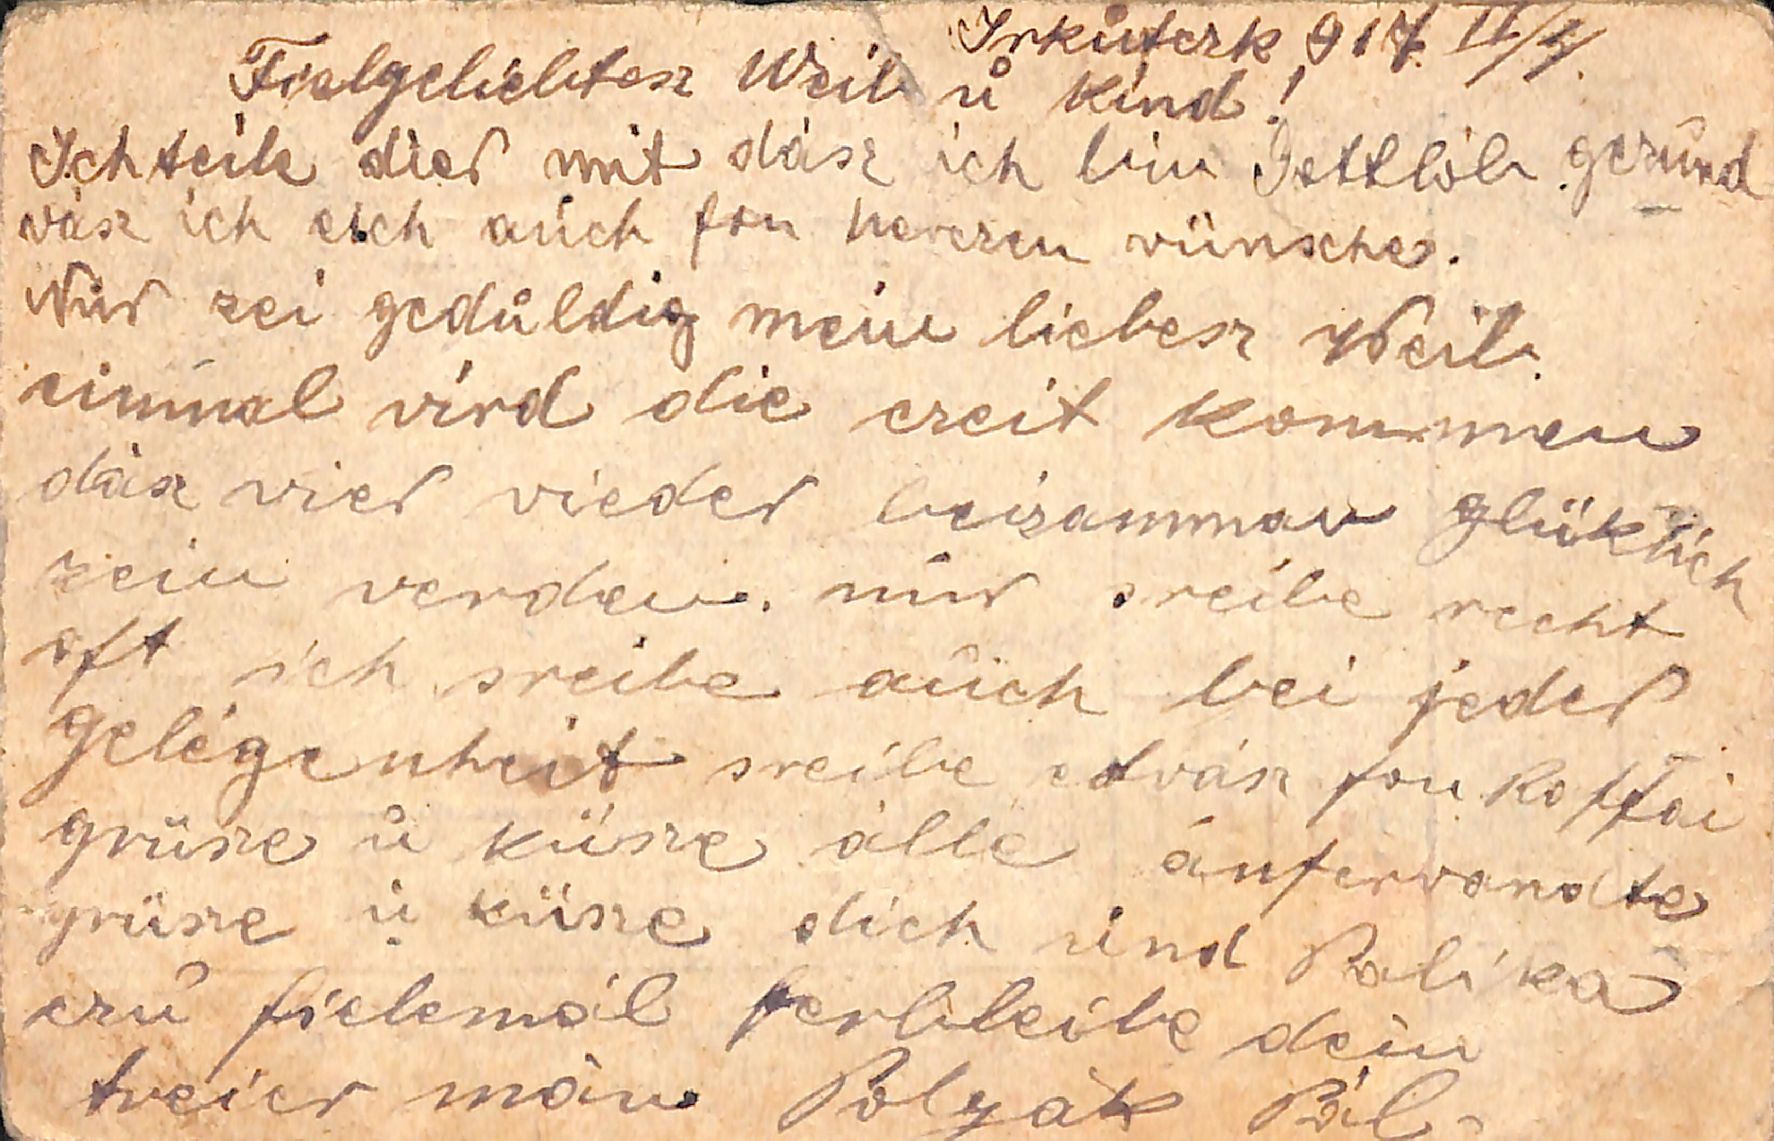 Irkutszk 917 II/4.
Fielgeliebtesz Weib ů Kind!
Ich teile dier mit dász ich bin Gottlob gezund
vász ich eich auch fon herczen vünsche.
Nur zei geduldig mein liebesz Weib.
einmal vird die czeit kommen
dász vier vieder beizammen glüklich
zein verden. nur sreibe recht
oft ich sreibe auch bei jeder
gelégenheit sreibe etvász fon
grüsze ů küsze álle ánfervandte
grüsze ů küsze dich und Palika
czu fielemál ferbleibe dein
treier mán Polyák Pál